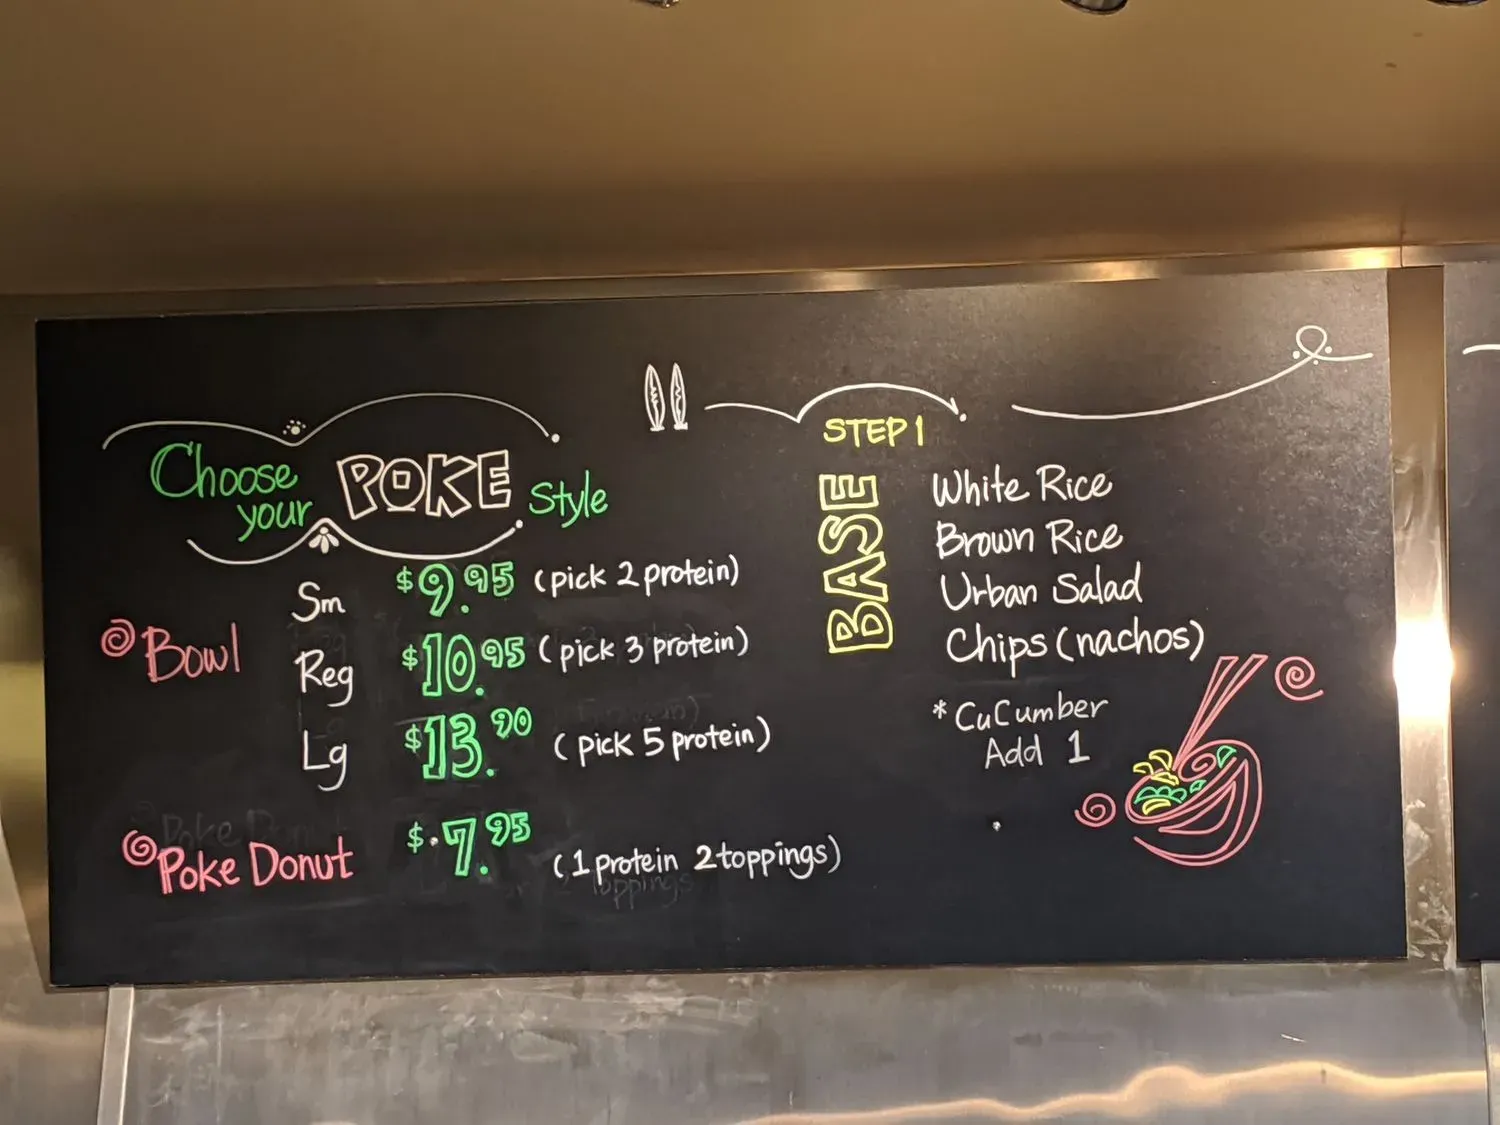 Choose your POKE Style
Bowl
Sm $9.95 (pick 2 protein)
Reg $10.95 (pick 3 protein)
Lg $13.90 (pick 5 protein)
Poke Donut $7.95 (1 protein 2 toppings)
STEP 1
BASE
White Rice
Brown Rice
Urban Salad
Chips (nachos)
* CuCumber
Add 1